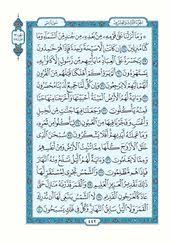 الجزء الثالث والعشرون سورة يس
۞ وَمَا أَنزَلْنَا عَلَىٰ قَوْمِهِ مِن بَعْدِهِ مِن جُندٍ مِّنَ السَّمَاءِ وَمَا
كُنَّا مُنزِلِينَ ٢٨ إِن كَانَتْ إِلَّا صَيْحَةً وَاحِدَةً فَإِذَا هُمْ خَامِدُونَ ٢٩
يَا حَسْرَةً عَلَى الْعِبَادِ مَا يَأْتِيهِم مِّن رَّسُولٍ إِلَّا كَانُوا بِهِ
يَسْتَهْزِءُونَ ٣٠ أَلَمْ يَرَوْا كَمْ أَهْلَكْنَا قَبْلَهُم مِّنَ الْقُرُونِ
أَنَّهُمْ إِلَيْهِمْ لَا يَرْجِعُونَ ٣١ وَإِن كُلٌّ لَّمَّا جَمِيعٌ لَّدَيْنَا مُحْضَرُونَ ٣٢
وَآيَةٌ لَّهُمُ الْأَرْضُ الْمَيْتَةُ أَحْيَيْنَاهَا وَأَخْرَجْنَا مِنْهَا حَبًّا
فَمِنْهُ يَأْكُلُونَ ٣٣ وَجَعَلْنَا فِيهَا جَنَّاتٍ مِّن نَّخِيلٍ
وَأَعْنَابٍ وَفَجَّرْنَا فِيهَا مِنَ الْعُيُونِ ٣٤ لِيَأْكُلُوا مِن ثَمَرِهِ
وَمَا عَمِلَتْهُ أَيْدِيهِمْ أَفَلَا يَشْكُرُونَ ٣٥ سُبْحَانَ الَّذِي
خَلَقَ الْأَزْوَاجَ كُلَّهَا مِمَّا تُنبِتُ الْأَرْضُ وَمِنْ أَنفُسِهِمْ
وَمِمَّا لَا يَعْلَمُونَ ٣٦ وَآيَةٌ لَّهُمُ اللَّيْلُ نَسْلَخُ مِنْهُ النَّهَارَ
فَإِذَا هُم مُّظْلِمُونَ ٣٧ وَالشَّمْسُ تَجْرِي لِمُسْتَقَرٍّ لَّهَا
ذَٰلِكَ تَقْدِيرُ الْعَزِيزِ الْعَلِيمِ ٣٨ وَالْقَمَرَ قَدَّرْنَاهُ مَنَازِلَ حَتَّىٰ
عَادَ كَالْعُرْجُونِ الْقَدِيمِ ٣٩ لَا الشَّمْسُ يَنبَغِي لَهَا أَن تُدْرِكَ
الْقَمَرَ وَلَا اللَّيْلُ سَابِقُ النَّهَارِ وَكُلٌّ فِي فَلَكٍ يَسْبَحُونَ ٤٠
٤٤٢